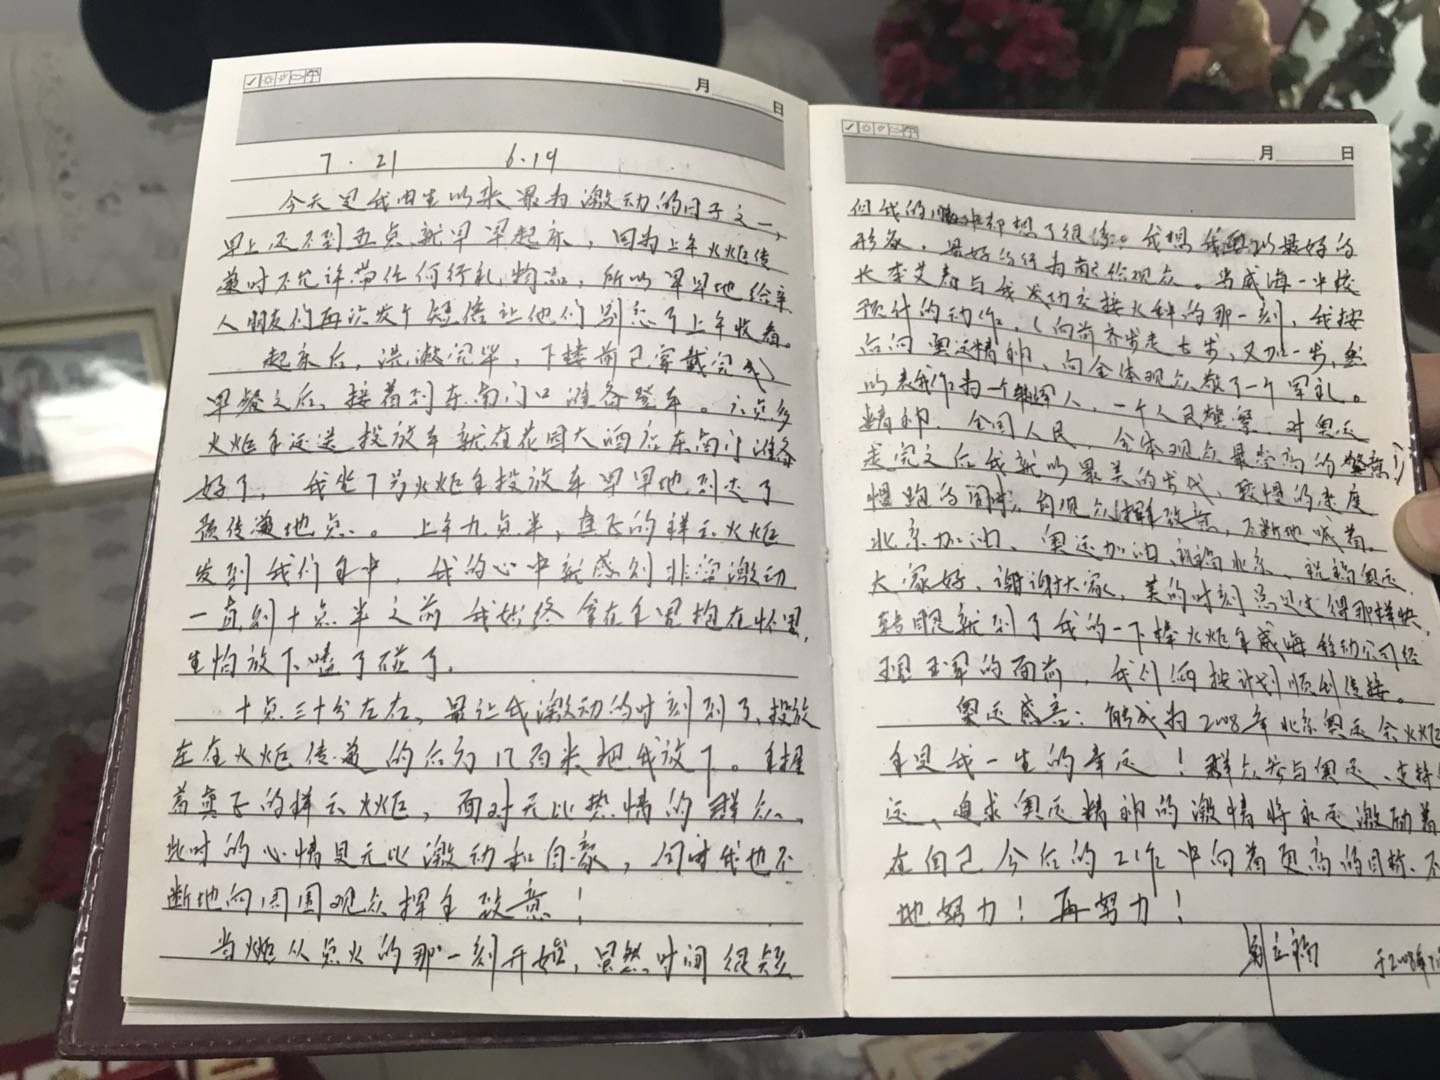 月 日
7.21 6.19
今天是我由生以来最为激动的日子之一,
早上还不到五点就早早起床,因为上午火炬传
递时不允许带任何行礼物品,所以早早地给亲
人朋友们再次发个短信让他们别忘了上午收看。
起床后,洗漱完毕,下楼前已穿戴完成,
早餐之后,接着到东南门口准备登车。六点多
火炬手运送投放车就在花园大酒店东南门准备
好了,我坐7号火炬手投放车早早地到达了
预传递地点。上午九点半,真正的祥云火炬
发到我们手中,我的心中就感到非常激动
一直到十点半之前我始终拿在手里抱在怀里,
生怕放下嗑了碰了。
十点三十分左右,最让我激动的时刻到了,投放
车在火炬传递的台为 把我放下。手握
着真正的祥云火炬,面对无比热情的群众,
此时的心情是无比激动和自豪,同时我也不
断地向周围观众挥手致意!
当火炬从点火的那一刻开始,虽然时间很短
月 日
但我的 中却想了很多。我想我要以最好的
形象,最好的行为献给观众。当威海一中校
长李艾 与我成功交接火种的那一刻,我按
预计的动作,(向前齐步走七步,又加一步,然
后向奥运精神、向全体观众敬了一个军礼。
以表我作为一个 军人,一个人民 警 对奥运
精神、全国人民、全体观众最崇高的敬意!)
走完之后我就以最美的步伐、较慢的速度
慢跑的同时,向观众挥手致意,不断地喊着。
北京加油、奥运加油、祝福北京、祝福奥运、
大家好、谢谢大家,美的时刻总是过得那样快,
转眼就到了我的一下棒火炬手威海移动公司经
理 军的面前,我们俩按计划顺利传接。
奥运感言:能成为2008年北京奥运会火炬
手是我一生的幸运!群众参与奥运、支持
运、追求奥运精神的激情将永远激励着
在自己今后的工作中向着更高的目标、不
地努力!再努力!
于2008年7.